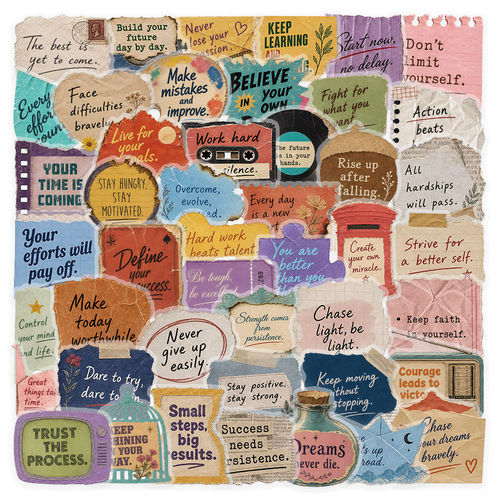 The best is
yet to come.
Build your
future
day by day.
Never
lose your
KEEP
LEARNING
AND
Start now,
no delay.
Don't
limit
yourself.
Every
effort
coun
Face
difficulties
bravely
Make
mistakes
and
improve.
BELIEVE
IN YOUR
OWN
Fight for
what you
want
Action
beats
Live for
your
goals.
Work hard
silence.
The future
is in your
hands.
Rise up
after
falling.
All
hardships
will pass.
YOUR
TIME IS
COMING
STAY HUNGRY,
STAY
MOTIVATED.
Overcome,
evolve,
Every day
is a new
Your
efforts will
pay off.
Define
your
success.
Hard work
beats talent
Be tough,
be excellent
You are
better
than you
Create
your own
miracle.
Strive for
a better self.
Control
your mind
and life.
Make
today
worthwhile.
Never
give up
easily.
Strength comes
from
persistence.
Chase
light, be
light.
Keep faith
in yourself.
Great
things take
time.
Dare to try,
dare to
Stay positive,
stay strong.
Keep moving
without
stopping.
Courage
leads to
victo
TRUST
THE
PROCESS.
KEEP
SHINING
IN YOUR
WAY.
Small
steps,
big
results.
Success
needs
persistence.
Dreams
never die.
up
road.
Chase
your dreams
bravely.